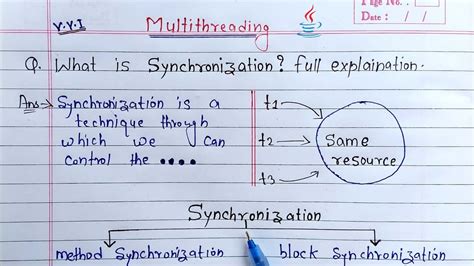 V.V.I
Multithreading
Page No. :
Date : / /
Q. What is Synchronization? full explaination.
Ans→ Synchronization is a
technique through
which we can
control the ••••
t1
t2
t3
Same
resource
Synchronization
method Synchronization
block Synchronization